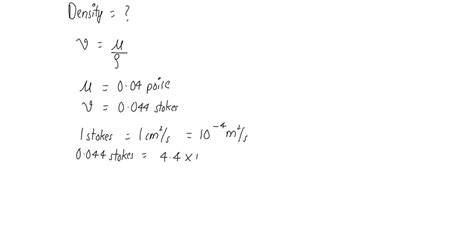 Density = ?
ν = μ/ρ
μ = 0.04 poise
ν = 0.044 stokes
1 stokes = 1 cm²/s = 10⁻⁴ m²/s
0.044 stokes = 4.4 × 1